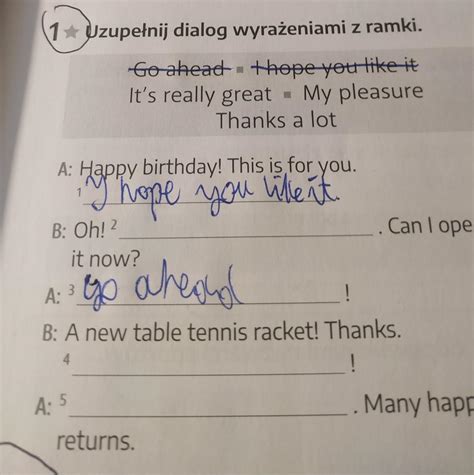 1 ★ Uzupełnij dialog wyrażeniami z ramki.
Go ahead ▪ I hope you like it
It's really great ▪ My pleasure
Thanks a lot
A: Happy birthday! This is for you.
1 I hope you like it.
B: Oh! 2 ____________. Can I ope
it now?
A: 3 go ahead !
B: A new table tennis racket! Thanks.
4 ____________!
A: 5 ____________. Many happ
returns.